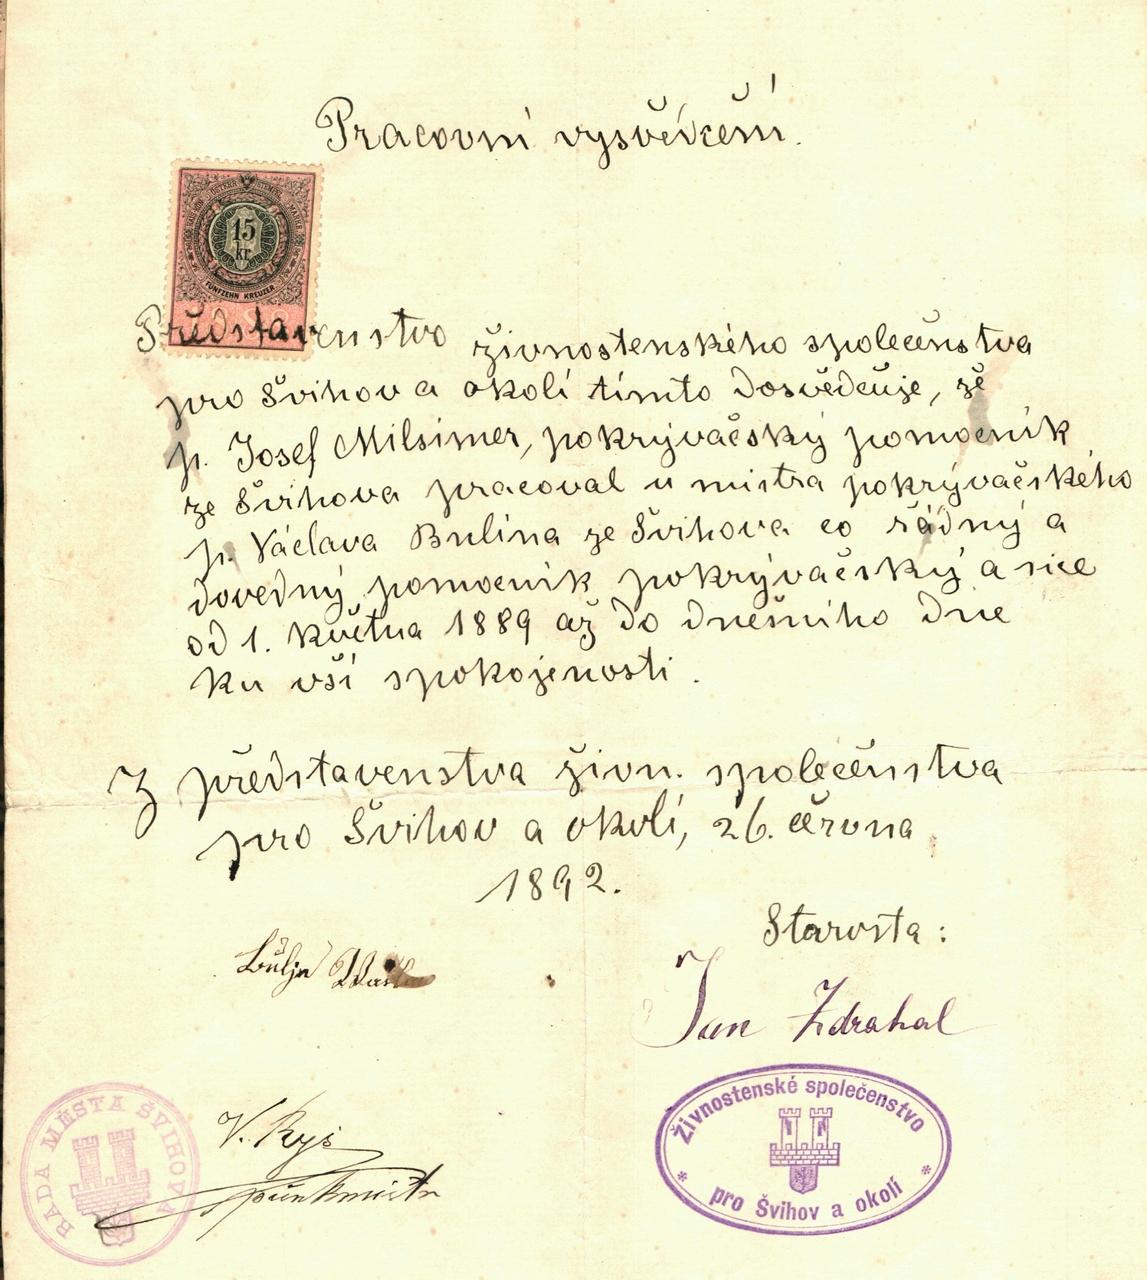 Pracovní vysvědčení.
15
kr
FÜNFZEHN KREUZER
Představenstvo živnostenského společenstva
pro Švihov a okolí tímto dosvědčuje, že
p. Josef Milsimer, pokrývačský pomocník
ze Švihova pracoval u mistra pokrývačského
p. Václava Bulína ze Švihova co řádný a
dovedný pomocník pokrývačský a sice
od 1. května 1889 až do dnešního dne
ku vší spokojenosti.
Z představenstva živn. společenstva
pro Švihov a okolí, 26. června
1892.
Starosta:
Jan Zdrahal
V. Ryš
RADA MĚSTA ŠVIHOVA
Živnostenské společenstvo
pro Švihov a okolí